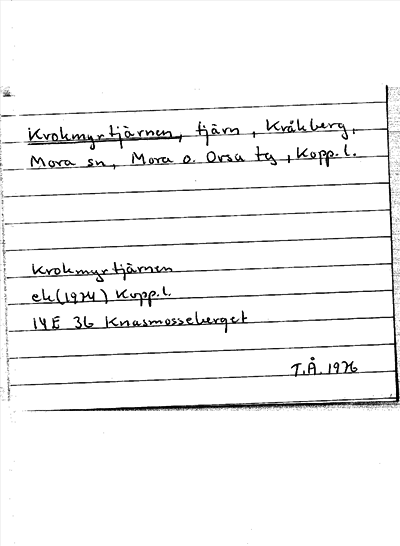 Krokmyrtjärnen, tjärn, Kråkberg,
Mora sn, Mora o. Orsa tg, Kopp.l.
Krokmyrtjärnen
ek(1974) Kopp.l.
14E 3b Knasmosseberget
T.Å. 1976